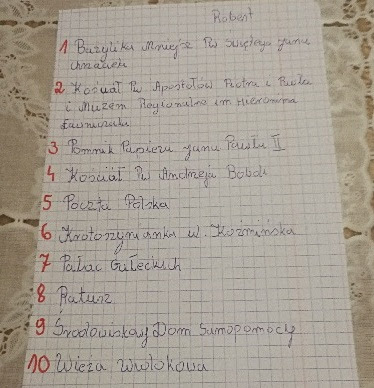 Robert
1 Bazylika Mniejsza Pw Świętego Jana
Chrzciciela
2 Kościół Pw Apostołów Piotra i Pawła
i Muzem Regionalne im Hieronima
Ławniczaka
3 Pomnik Papieża Jana Pawła II
4 Kościół Pw Andrzeja Boboli
5 Poczta Polska
6 Krotoszynianka ul. Koźmińska
7 Pałac Gałeckich
8 Ratusz
9 Środowiskowy Dom Samopomocy
10 Wieża